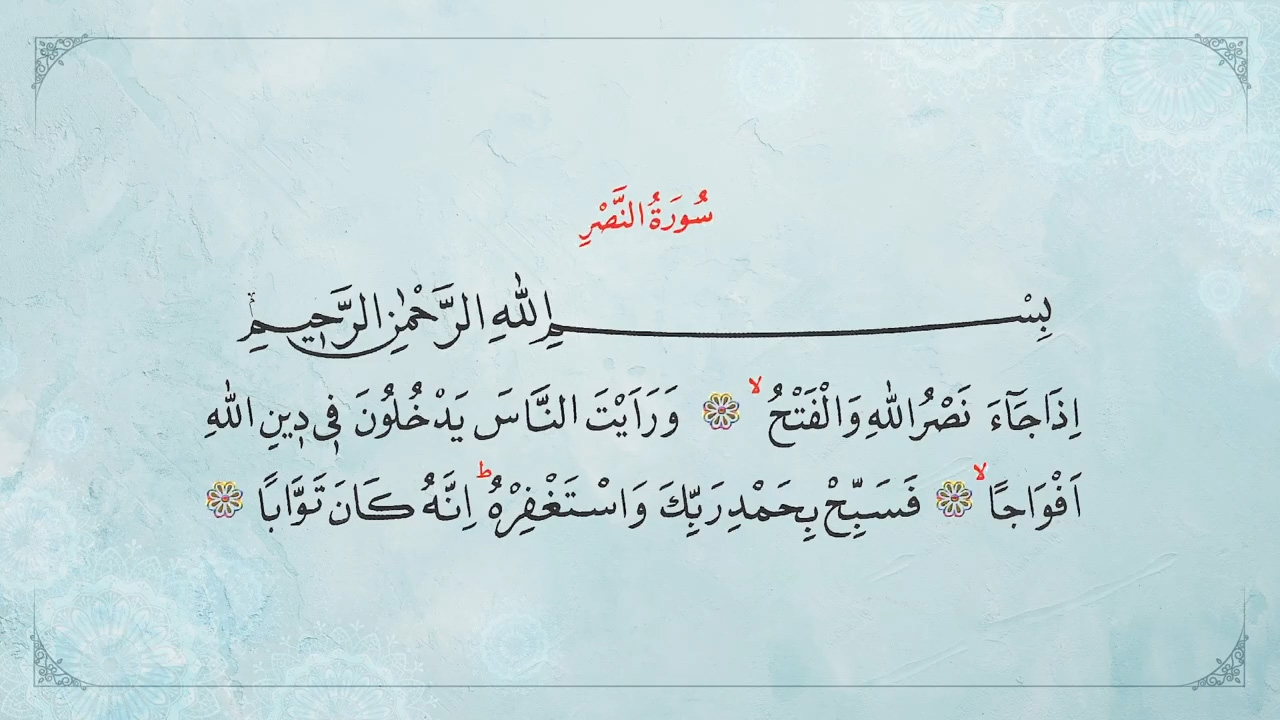 سُورَةُ النَّصْرِ
بِسْمِ اللّٰهِ الرَّحْمٰنِ الرَّحِيمِ
اِذَا جَآءَ نَصْرُ اللّٰهِ وَالْفَتْحُ ۙ ۝ وَرَاَيْتَ النَّاسَ يَدْخُلُونَ فِى دِينِ اللّٰهِ
اَفْوَاجًا ۙ ۝ فَسَبِّحْ بِحَمْدِ رَبِّكَ وَاسْتَغْفِرْهُ ؕ اِنَّهُ كَانَ تَوَّابًا ۝